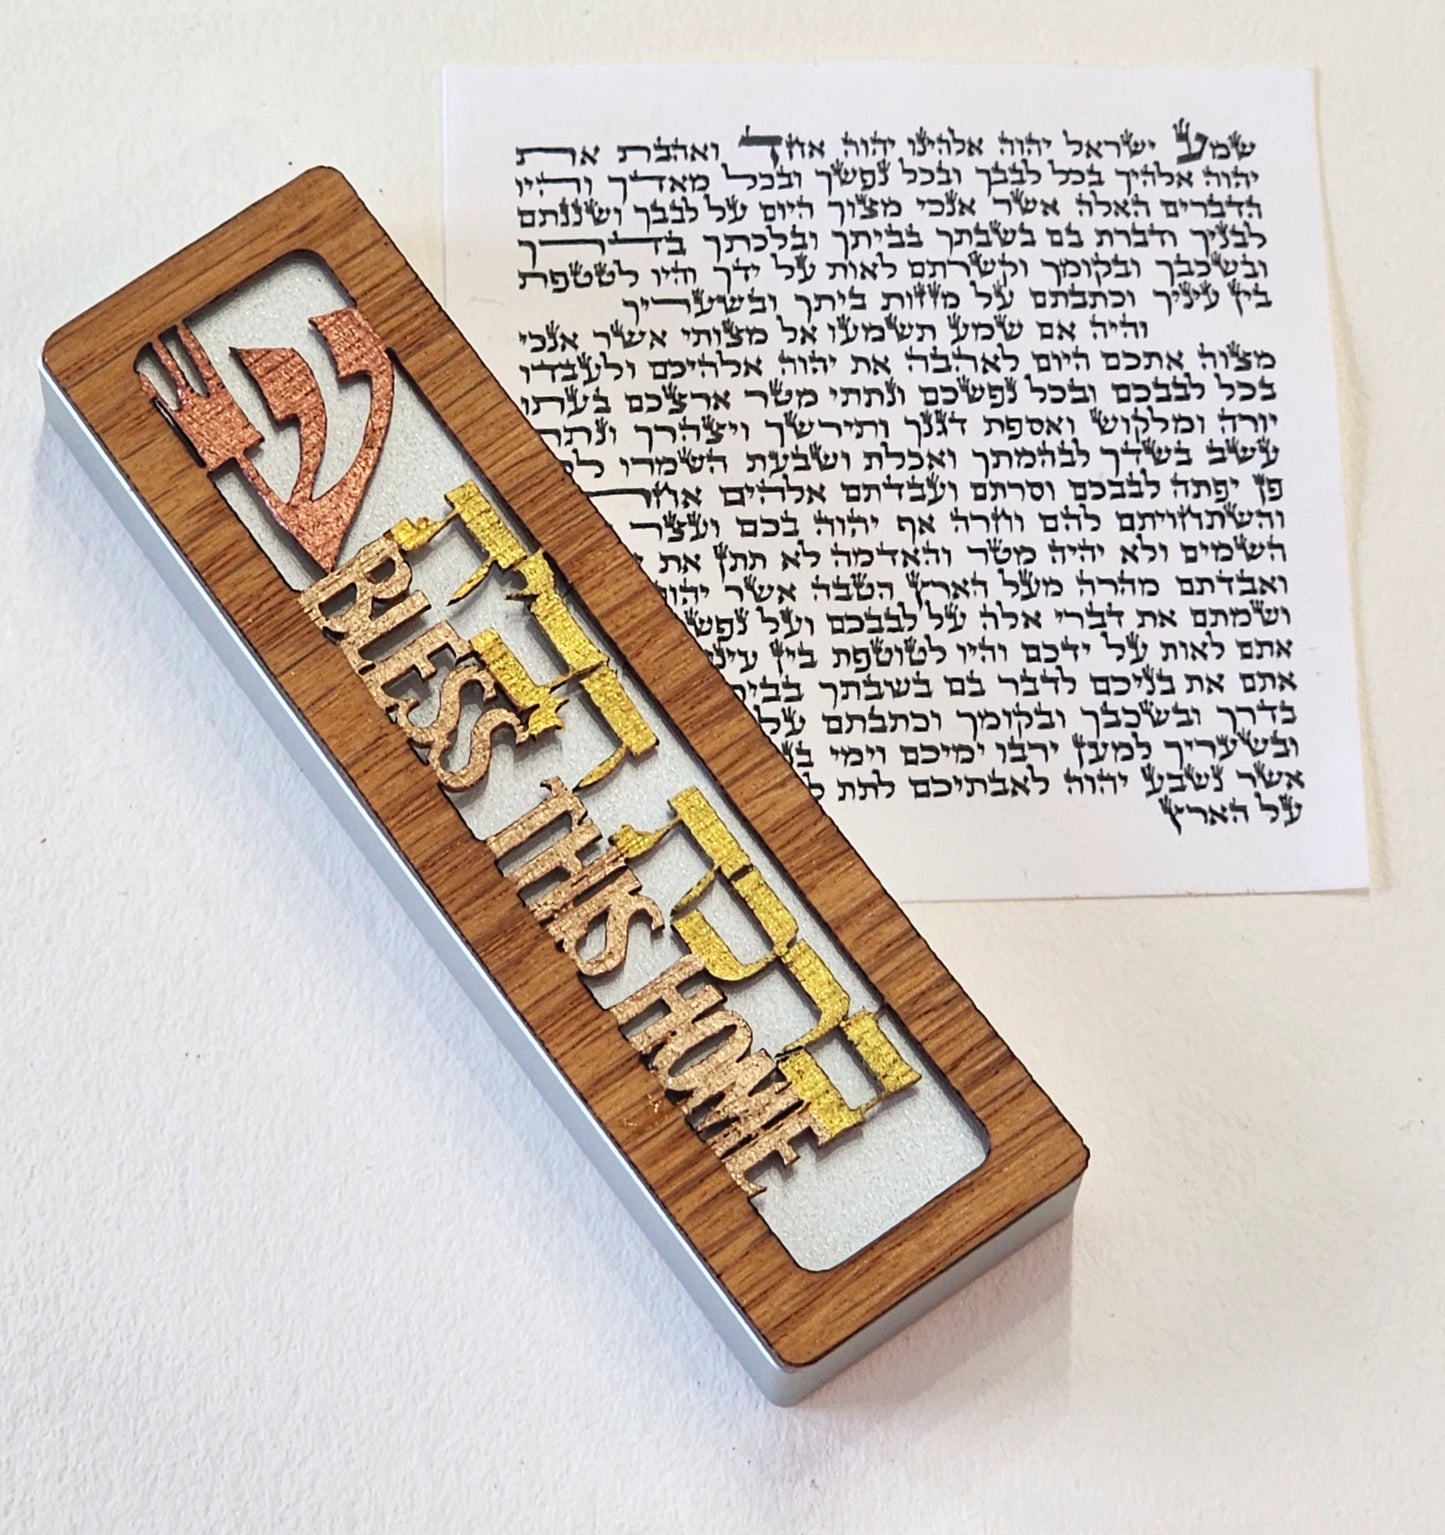 ש
BLESS THIS HOME
שמע ישראל יהוה אלהינו יהוה אחד ואהבת את
יהוה אלהיך בכל לבבך ובכל נפשך ובכל מאדך והיו
הדברים האלה אשר אנכי מצוך היום על לבבך ושננתם
לבניך ודברת בם בשבתך בביתך ובלכתך בדרך
ובשכבך ובקומך וקשרתם לאות על ידך והיו לטטפת
בין עיניך וכתבתם על מזזות ביתך ובשעריך
והיה אם שמע תשמעו אל מצותי אשר אנכי
מצוה אתכם היום לאהבה את יהוה אלהיכם ולעבדו
בכל לבבכם ובכל נפשכם ונתתי מטר ארצכם בעתו
יורה ומלקוש ואספת דגנך ותירשך ויצהרך
עשב בשדך לבהמתך ואכלת ושבעת השמרו
פן יפתה לבבכם וסרתם ועבדתם אלהים
והשתחויתם להם וחרה אף יהוה בכם ועצר
השמים ולא יהיה מטר והאדמה לא תתן את
ואבדתם מהרה מעל הארץ הטבה אשר יהוה
ושמתם את דברי אלה על לבבכם ועל
אתם לאות על ידכם והיו לטוטפת בין
אתם את בניכם לדבר בם בשבתך
בדרך ובשכבך ובקומך וכתבתם על
ובשעריך למען ירבו ימיכם וימי
אשר נשבע יהוה לאבתיכם לתת
על הארץ